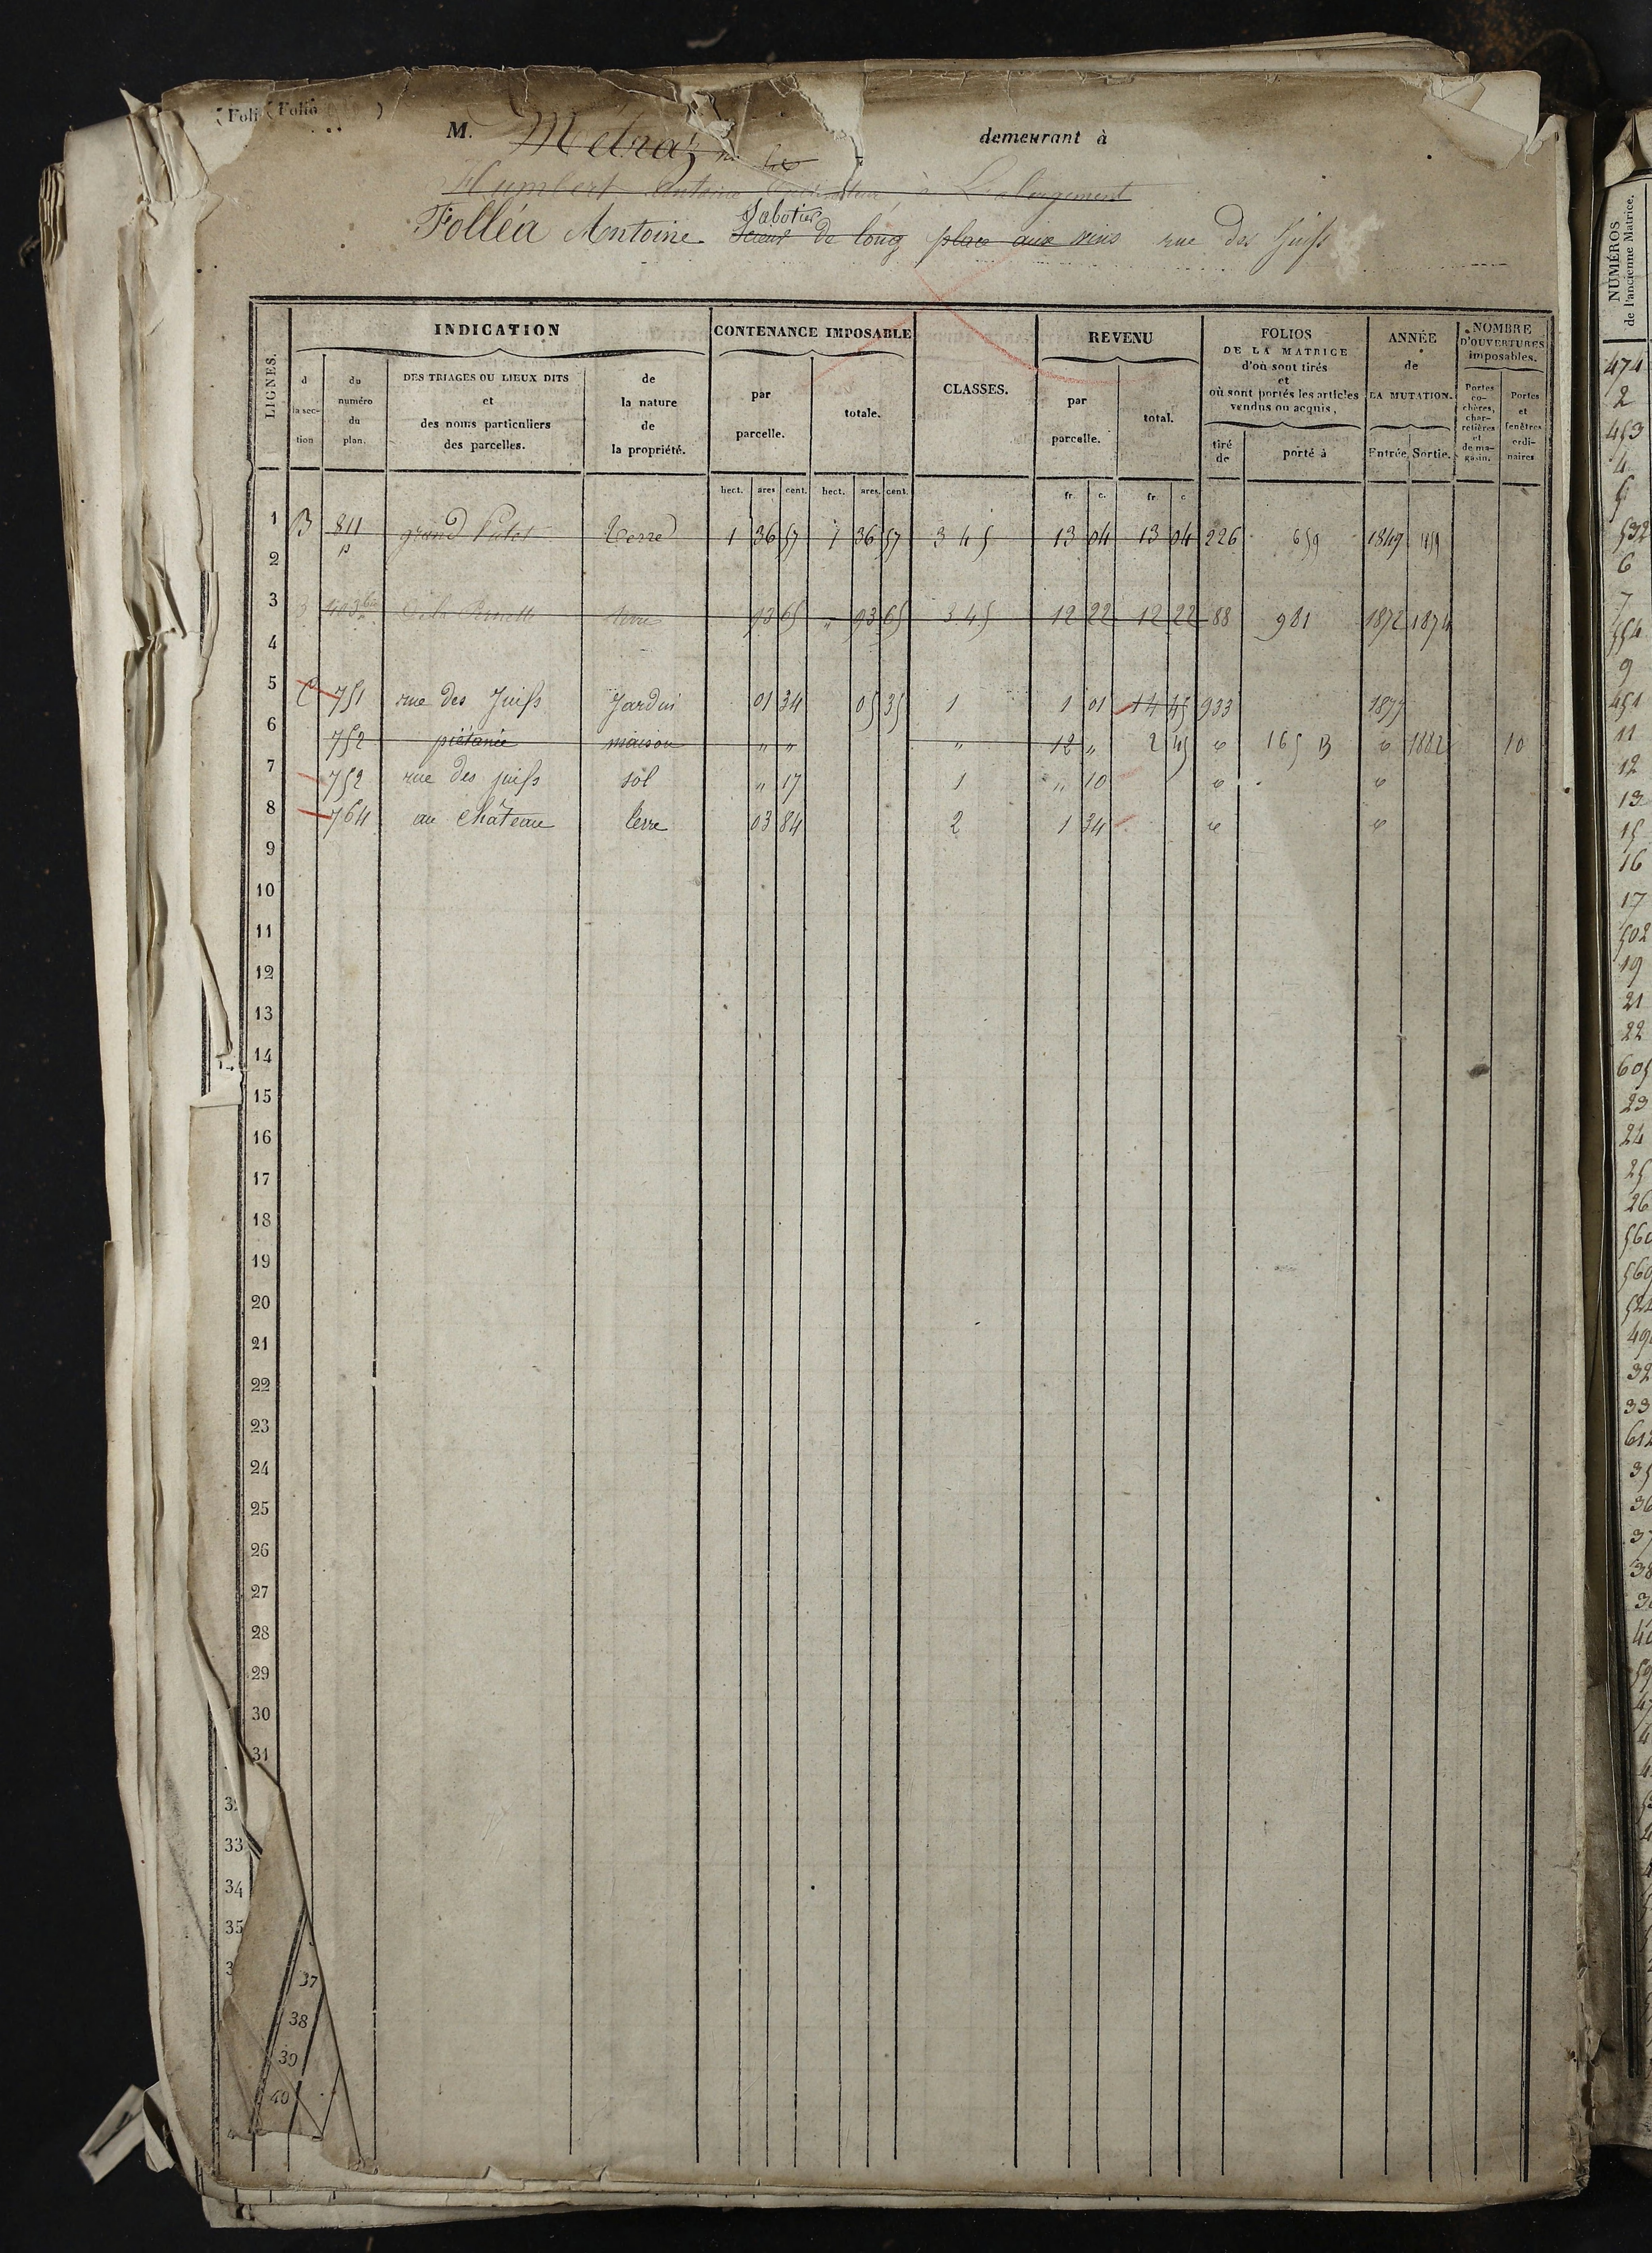 (Foli (Folio )
M. Métraz demeurant à
Humbert Antoine à
Folléa Antoine Scieur de long place aux vins rue des Juifs
Sabotier
LIGNES.
INDICATION
CONTENANCE IMPOSABLE
CLASSES.
REVENU
FOLIOS DE LA MATRICE d'où sont tirés et où sont portés les articles vendus ou acquis,
ANNÉE de LA MUTATION.
NOMBRE D'OUVERTURES imposables.
d la sec- tion
du numéro du plan.
DES TRIAGES OU LIEUX DITS et des noms particuliers des parcelles.
de la nature de la propriété.
par parcelle.
totale.
par parcelle.
total.
tiré de
porté à
Entrée
Sortie.
Portes co- chères, char- retières et de ma- gasin.
Portes et fenêtres ordi- naires
hect. ares cent. hect. ares cent. fr. c. fr. c
1 B 811 p grand Terre 1 36 57 1 36 57 3 4 5 13 04 13 04 226 659 1849 1859
2
3 B 403 bis terre 93 65 " 93 65 3.4.5 12 22 12 22 88 981 1872 1874
4
5 C 751 rue des Juifs Jardin 01 34 05 35 1 1 01 14 45 933 1877
6 752 piétanie maison " " " 12 " 2 45 " 165 B " 1882 10
7 752 rue des juifs sol " 17 1 " 10 " "
8 764 au Château terre 03 84 2 1 34 " "
9
10
11
12
13
14
15
16
17
18
19
20
21
22
23
24
25
26
27
28
29
30
31
33
34
35
37
38
39
40
NUMÉROS de l'ancienne Matrice.
474
2
453
4
5
532
6
7
554
9
451
11
12
13
15
16
17
502
19
21
22
605
23
24
25
26